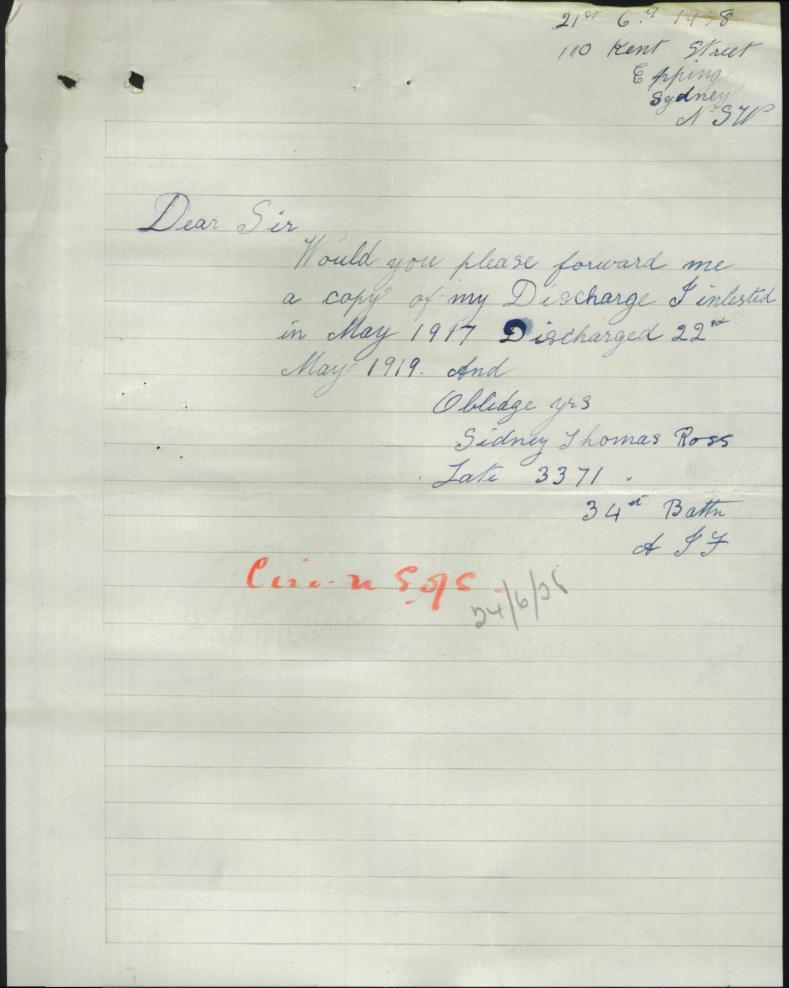 21st 6.th 1938
110 Kent Street
Epping
Sydney
N S W
Dear Sir
Would you please forward me
a copy of my Discharge I intested
in May 1917 Discharged 22nd
May 1919. And
Obledge yrs
Sidney Thomas Ross
Late 3371.
34st Battn
A I F
24/6/38